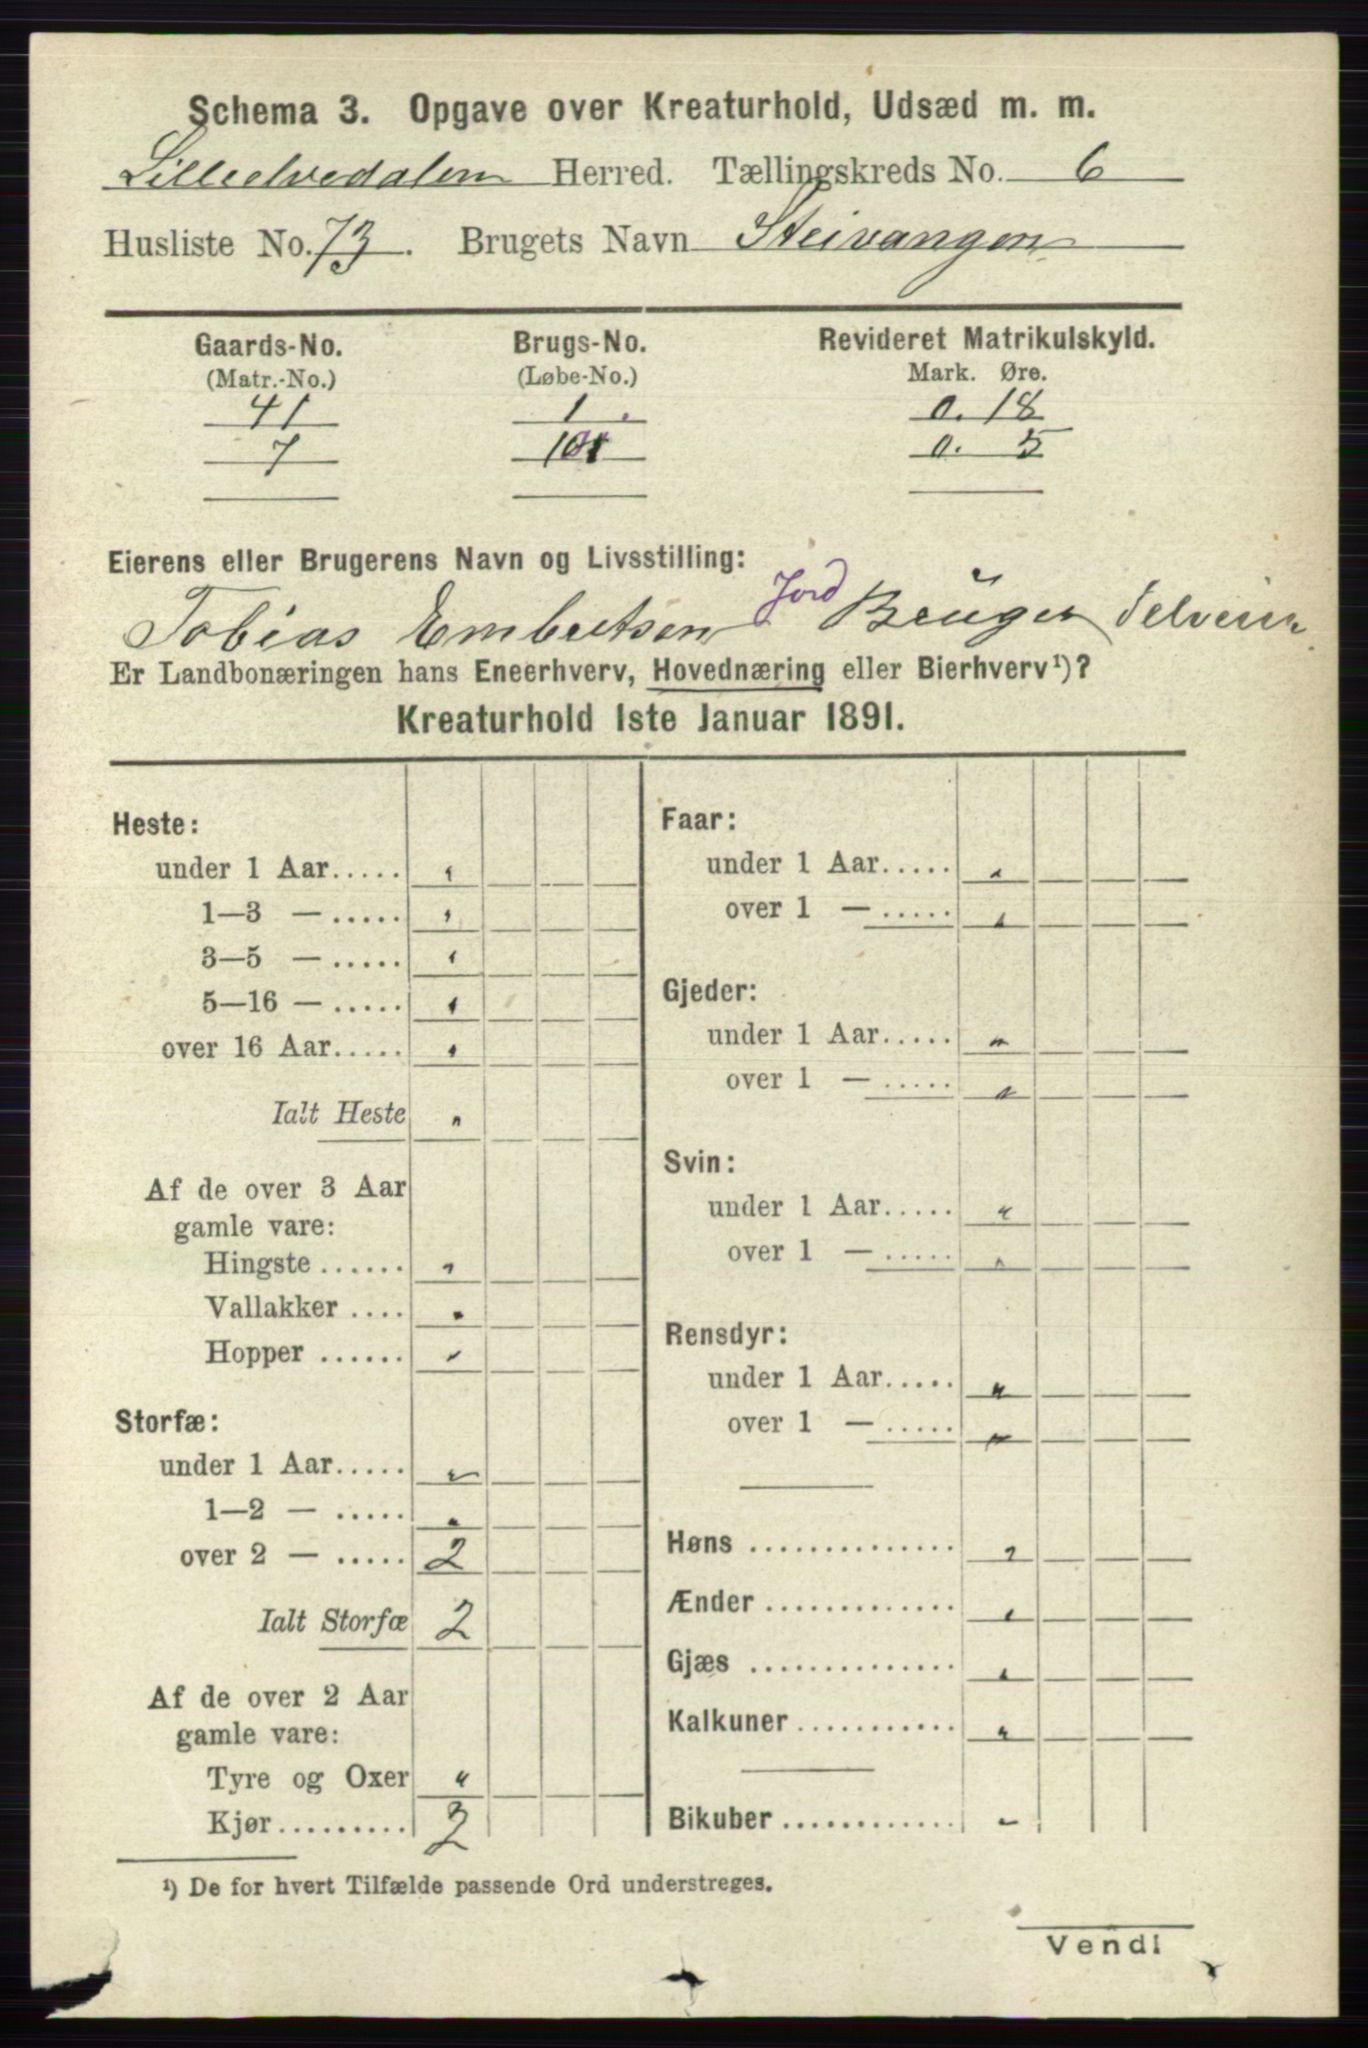 Schema 3. Opgave over Kreaturhold, Udsæd m. m.
Lilleelvedalen Herred. Tællingskreds No. 6
Husliste No. 73. Brugets Navn Steivangen
Gaards-No. Brugs-No. Revideret Matrikulskyld.
(Matr.-No.) (Løbe-No.) Mark. Øre.
41 1 0. 18
7 101 0. 5
Eierens eller Brugerens Navn og Livsstilling:
Tobias Embretsen Jord Bruger Selveier
Er Landbonæringen hans Eneerhverv, Hovednæring eller Bierhverv¹)?
Kreaturhold 1ste Januar 1891.
Heste:
under 1 Aar..... "
1—3 — ..... "
3—5 — ..... "
5—16 — ..... "
over 16 Aar..... "
Ialt Heste "
Af de over 3 Aar
gamle vare:
Hingste ...... "
Vallakker .... "
Hopper ...... "
Storfæ:
under 1 Aar..... "
1—2 — ..... "
over 2 — ..... 2
Ialt Storfæ 2
Af de over 2 Aar
gamle vare:
Tyre og Oxer "
Kjør......... 2
Faar:
under 1 Aar..... "
over 1 — ..... "
Gjeder:
under 1 Aar..... "
over 1 — ..... "
Svin:
under 1 Aar..... "
over 1 — ..... "
Rensdyr:
under 1 Aar..... "
over 1 — ..... "
Høns .............. "
Ænder ............. "
Gjæs .............. "
Kalkuner ........... "
Bikuber ............ "
¹) De for hvert Tilfælde passende Ord understreges.
Vend!